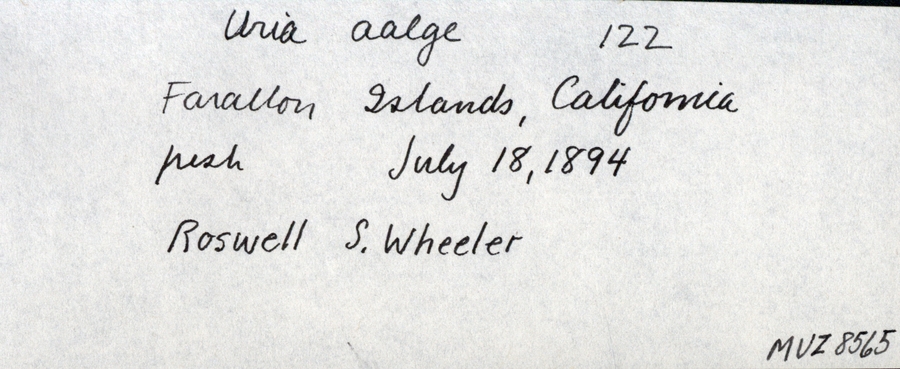 Uria aalge 122
Farallon Islands, California
fresh July 18, 1894
Roswell S. Wheeler
MVZ 8565